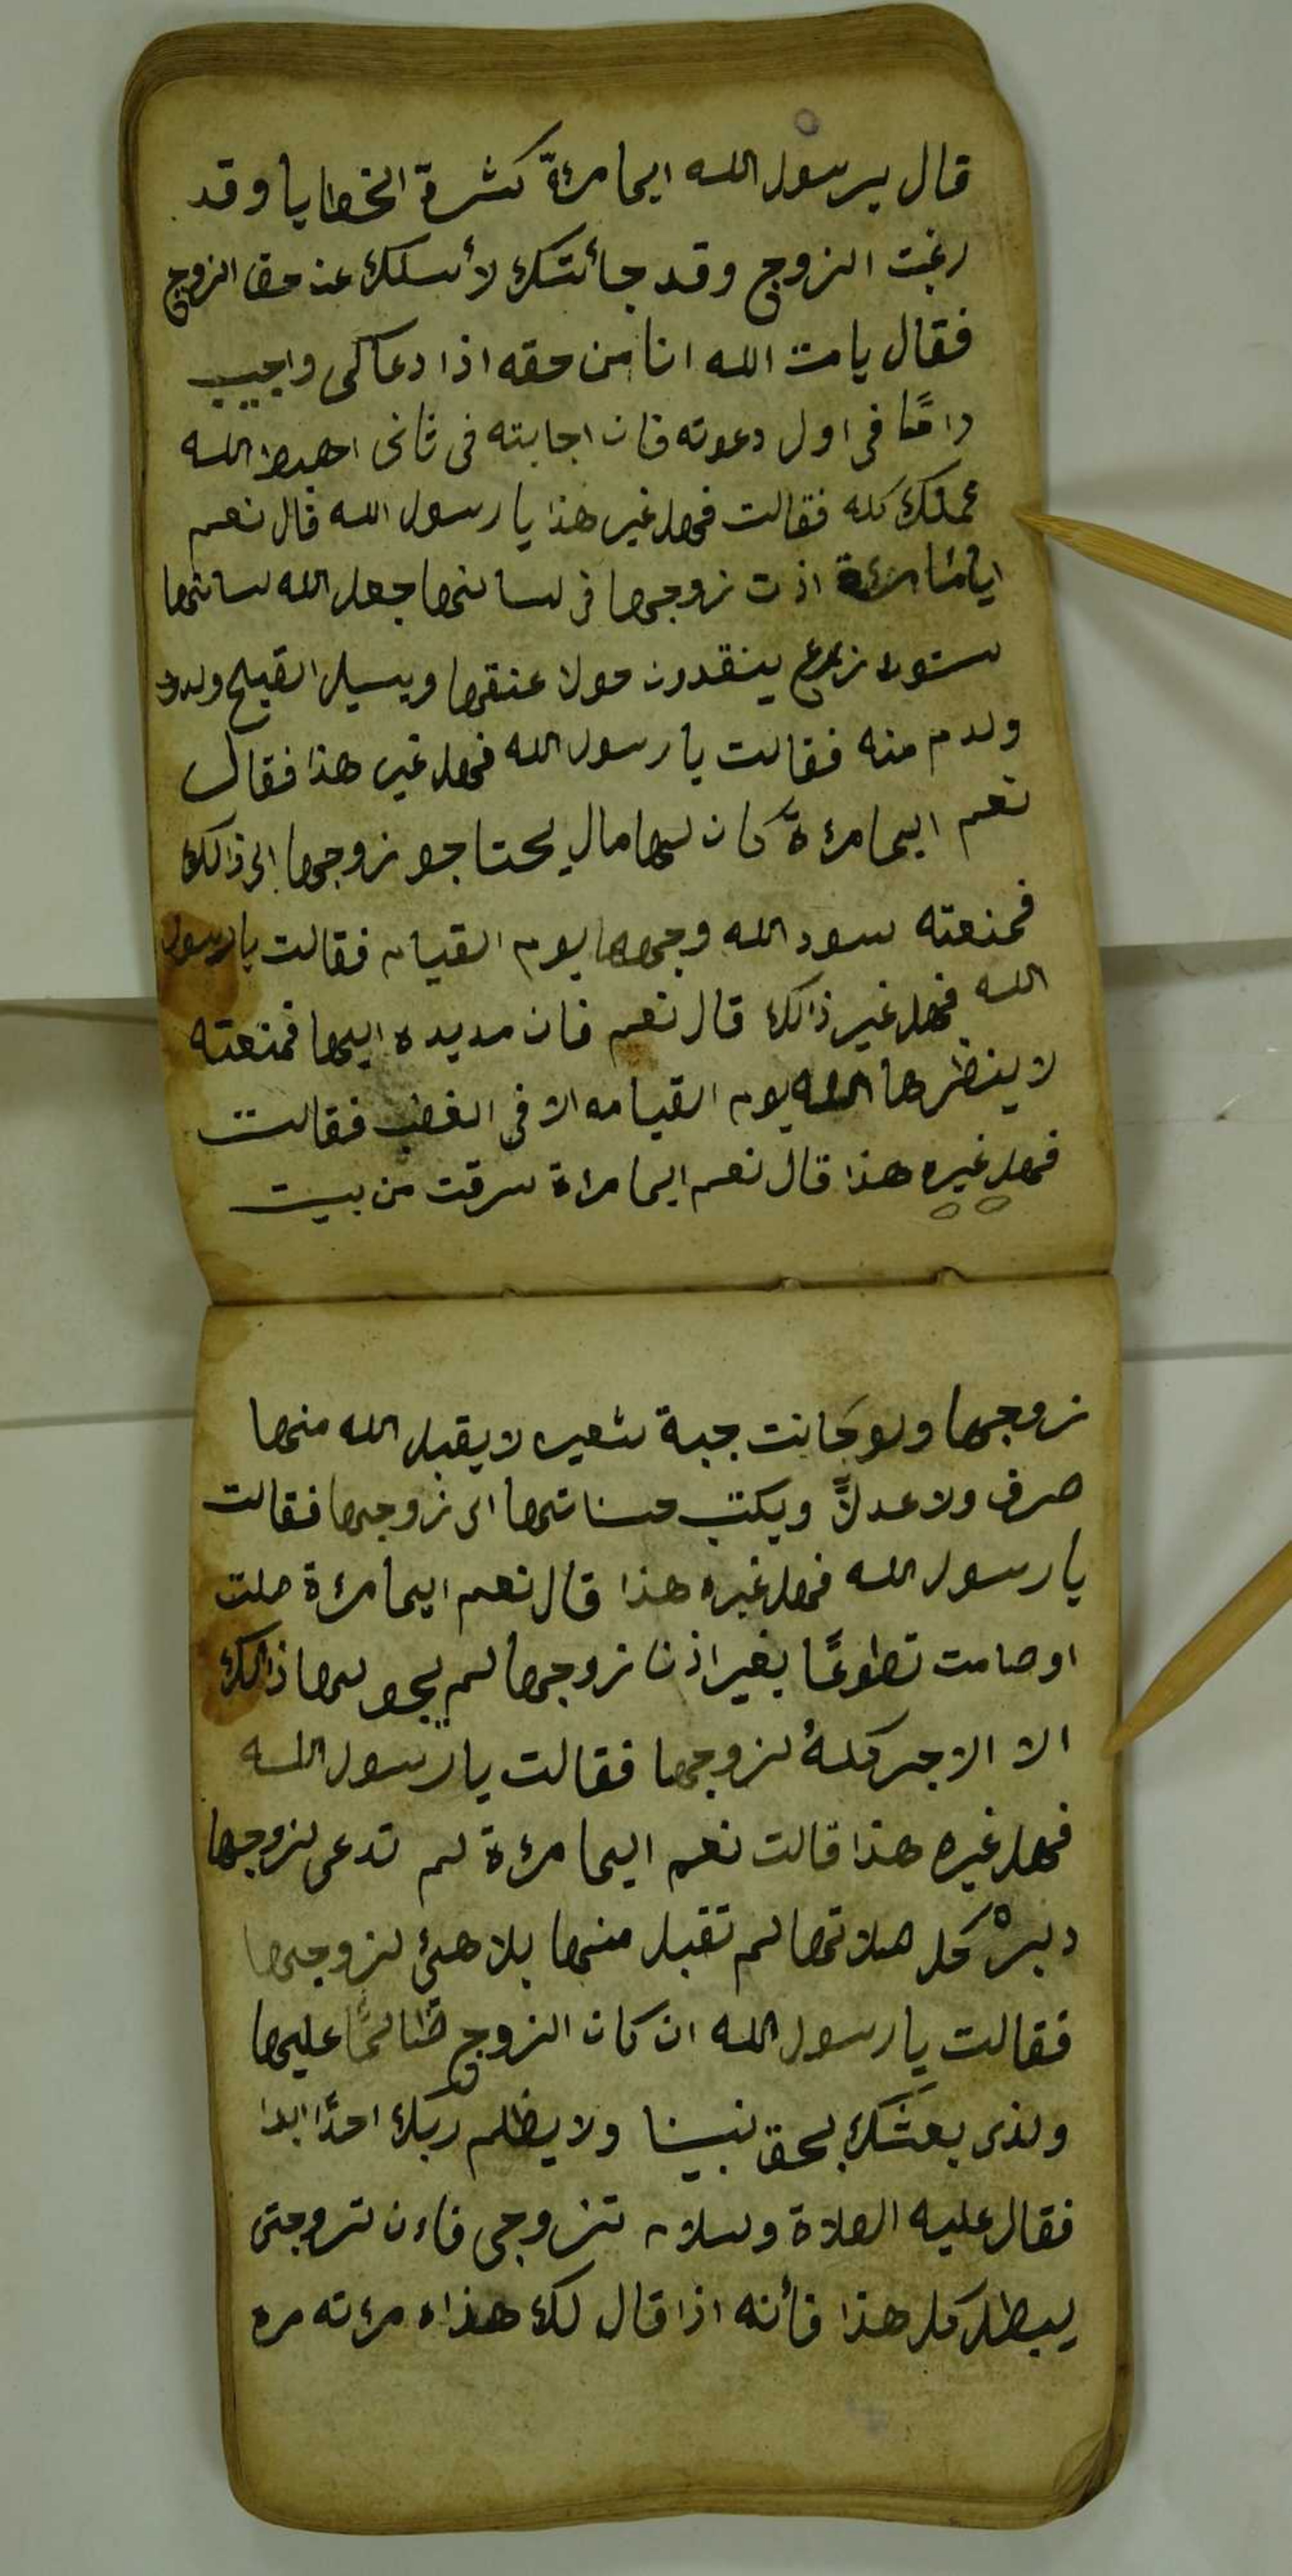 قال يرسول الله ايما مرءةً كثرة الخطايا وقد
رغبت الزوج وقد جائتك لأسلك عن حق الزوج
فقال يا مت الله انا من حقه اذا دعاكى واجيب
دامًا فى اول دعوته فان اجابته فى ثانى احبط الله
عملك كله فقالت فهل غير هذا يا رسول الله قال نعم
اذت زوجها فى لسانها جعل الله لسانها
ستون ينقدون حولا عنقها ويسيل القيح
ولدم منه فقالت يا رسول الله فهل غير هذا فقال
نعم ايما مرءةً كان ليها مال يحتاجو زوجها الى ذالك
فمنعته سود الله وجهها يوم القيام فقالت يا رسول
الله فهل غير ذالك قال نعم فان مد يده اليها فمنعته
لا ينظرها الله يوم القيامه الا فى الغضب فقالت
فهل غيره هذا قال نعم ايما مراة سرقت من بيت
زوجها ولو كانت جبة شعير لا يقبل الله منها
صرف ولا عدلاً ويكتب حسناتها الى زوجها فقالت
يا رسول الله فهل غيره هذا قال نعم ايما مرءة صلت
او صامت تطوعًا بغير اذن زوجها لم يجو لها ذالك
الا الاجر كلهُ لزوجها فقالت يا رسول الله
فهل غيره هذا قالت نعم ايما مرءة لم تدعى لزوجها
دبر كل صلاتها لم تقبل منها بلا هى لزوجها
فقالت يا رسول الله ان كان الزوج ظالمًا عليها
ولذى بعثك بحق نبينا ولا يظلم ربك احدًا ابدا
فقال عليه الصلاة وسلام تنزوجى فاءن تزوجتى
يبطل كل هذا فأنه اذا قال لك هذا مرته مره